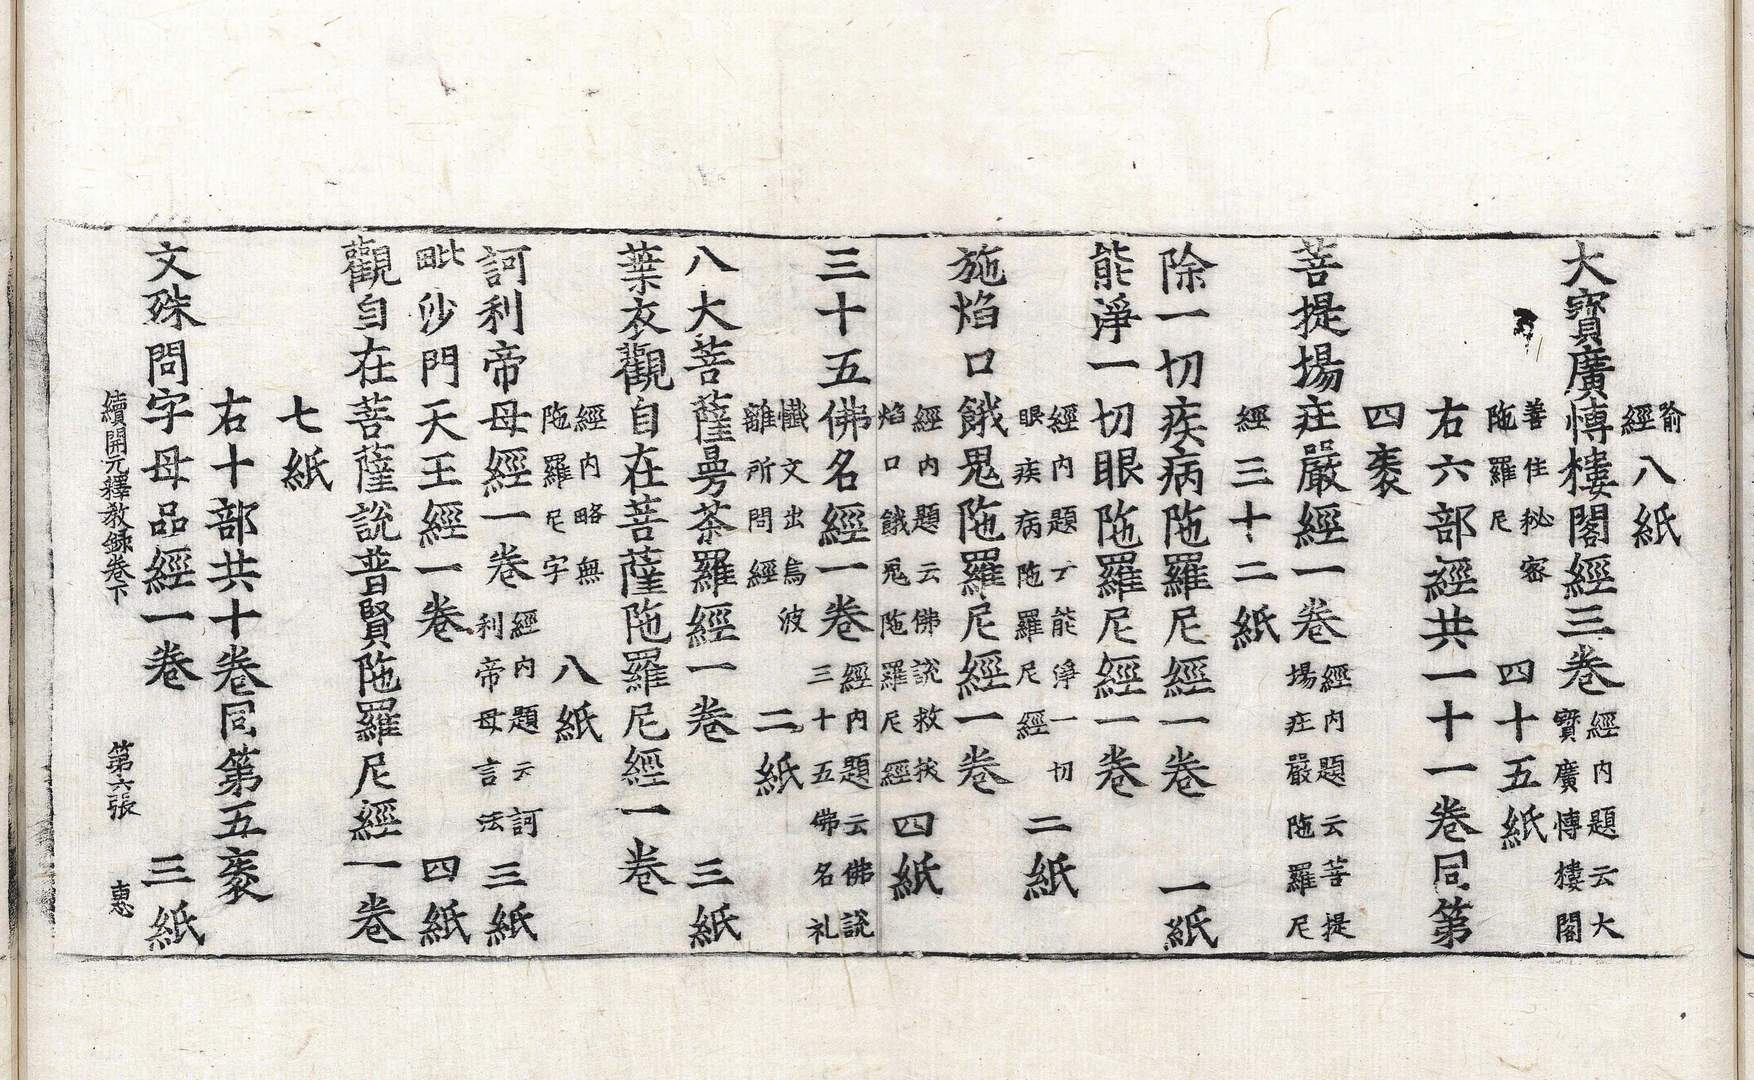 喻經 八紙
大寶廣博樓閣經三卷 經內題云大寶廣博樓閣
善住秘密陁羅尼 四十五紙
右六部經共一十一卷同第
四袠
菩提場庄嚴經一卷 經內題云菩提場庄嚴陁羅尼
經 三十二紙
除一切疾病陁羅尼經一卷 一紙
能淨一切眼陁羅尼經一卷
經內題云能淨一切眼疾病陁羅尼經 二紙
施焰口餓鬼陁羅尼經一卷
經內題云佛說救拔焰口餓鬼陁羅尼經 四紙
三十五佛名經一卷 經內題云佛說三十五佛名礼
懺文出烏波離所問經 二紙
八大菩薩曼荼羅經一卷 三紙
葉衣觀自在菩薩陁羅尼經一卷
經內略無陁羅尼字 八紙
訶利帝母經一卷 經內題云訶利帝母言法 三紙
毗沙門天王經一卷 四紙
觀自在菩薩說普賢陁羅尼經一卷
七紙
右十部共十卷同第五袠
文殊問字母品經一卷 三紙
續開元釋教錄卷下 第六張 惠